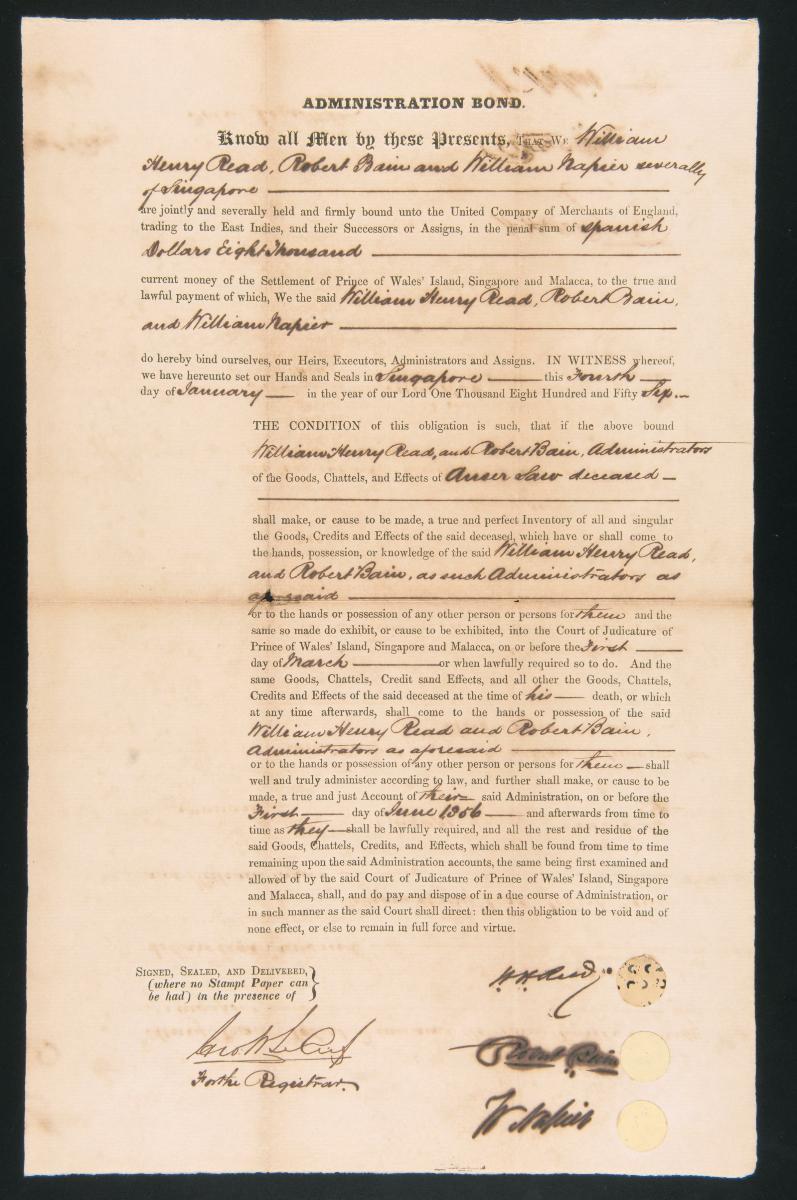 ADMINISTRATION BOND.
Know all Men by these Presents, THAT WE William
Henry Read, Robert Bain and William Napier severally
of Singapore
are jointly and severally held and firmly bound unto the United Company of Merchants of England,
trading to the East Indies, and their Successors or Assigns, in the penal sum of spanish
Dollars Eight Thousand
current money of the Settlement of Prince of Wales' Island, Singapore and Malacca, to the true and
lawful payment of which, We the said William Henry Read, Robert Bain,
and William Napier
do hereby bind ourselves, our Heirs, Executors, Administrators and Assigns. IN WITNESS whereof,
we have hereunto set our Hands and Seals in Singapore this Fourth
day of January in the year of our Lord One Thousand Eight Hundred and Fifty Six.
THE CONDITION of this obligation is such, that if the above bound
William Henry Read, and Robert Bain, Administrators
of the Goods, Chattels, and Effects of Anser Law deceased
shall make, or cause to be made, a true and perfect Inventory of all and singular
the Goods, Credits and Effects of the said deceased, which have or shall come to
the hands, possession, or knowledge of the said William Henry Read,
and Robert Bain, as such Administrators as
aforesaid
or to the hands or possession of any other person or persons for them and the
same so made do exhibit, or cause to be exhibited, into the Court of Judicature of
Prince of Wales' Island, Singapore and Malacca, on or before the First
day of March or when lawfully required so to do. And the
same Goods, Chattels, Credit sand Effects, and all other the Goods, Chattels,
Credits and Effects of the said deceased at the time of his death, or which
at any time afterwards, shall come to the hands or possession of the said
William Henry Read and Robert Bain,
Administrators as aforesaid
or to the hands or possession of any other person or persons for them shall
well and truly administer according to law, and further shall make, or cause to be
made, a true and just Account of their said Administration, on or before the
First day of June 1856 and afterwards from time to
time as they shall be lawfully required, and all the rest and residue of the
said Goods, Chattels, Credits, and Effects, which shall be found from time to time
remaining upon the said Administration accounts, the same being first examined and
allowed of by the said Court of Judicature of Prince of Wales' Island, Singapore
and Malacca, shall, and do pay and dispose of in a due course of Administration, or
in such manner as the said Court shall direct: then this obligation to be void and of
none effect, or else to remain in full force and virtue.
SIGNED, SEALED, AND DELIVERED,
(where no Stampt Paper can
be had) in the presence of
W H Read
Robert Bain
For the Registrar.
W Napier